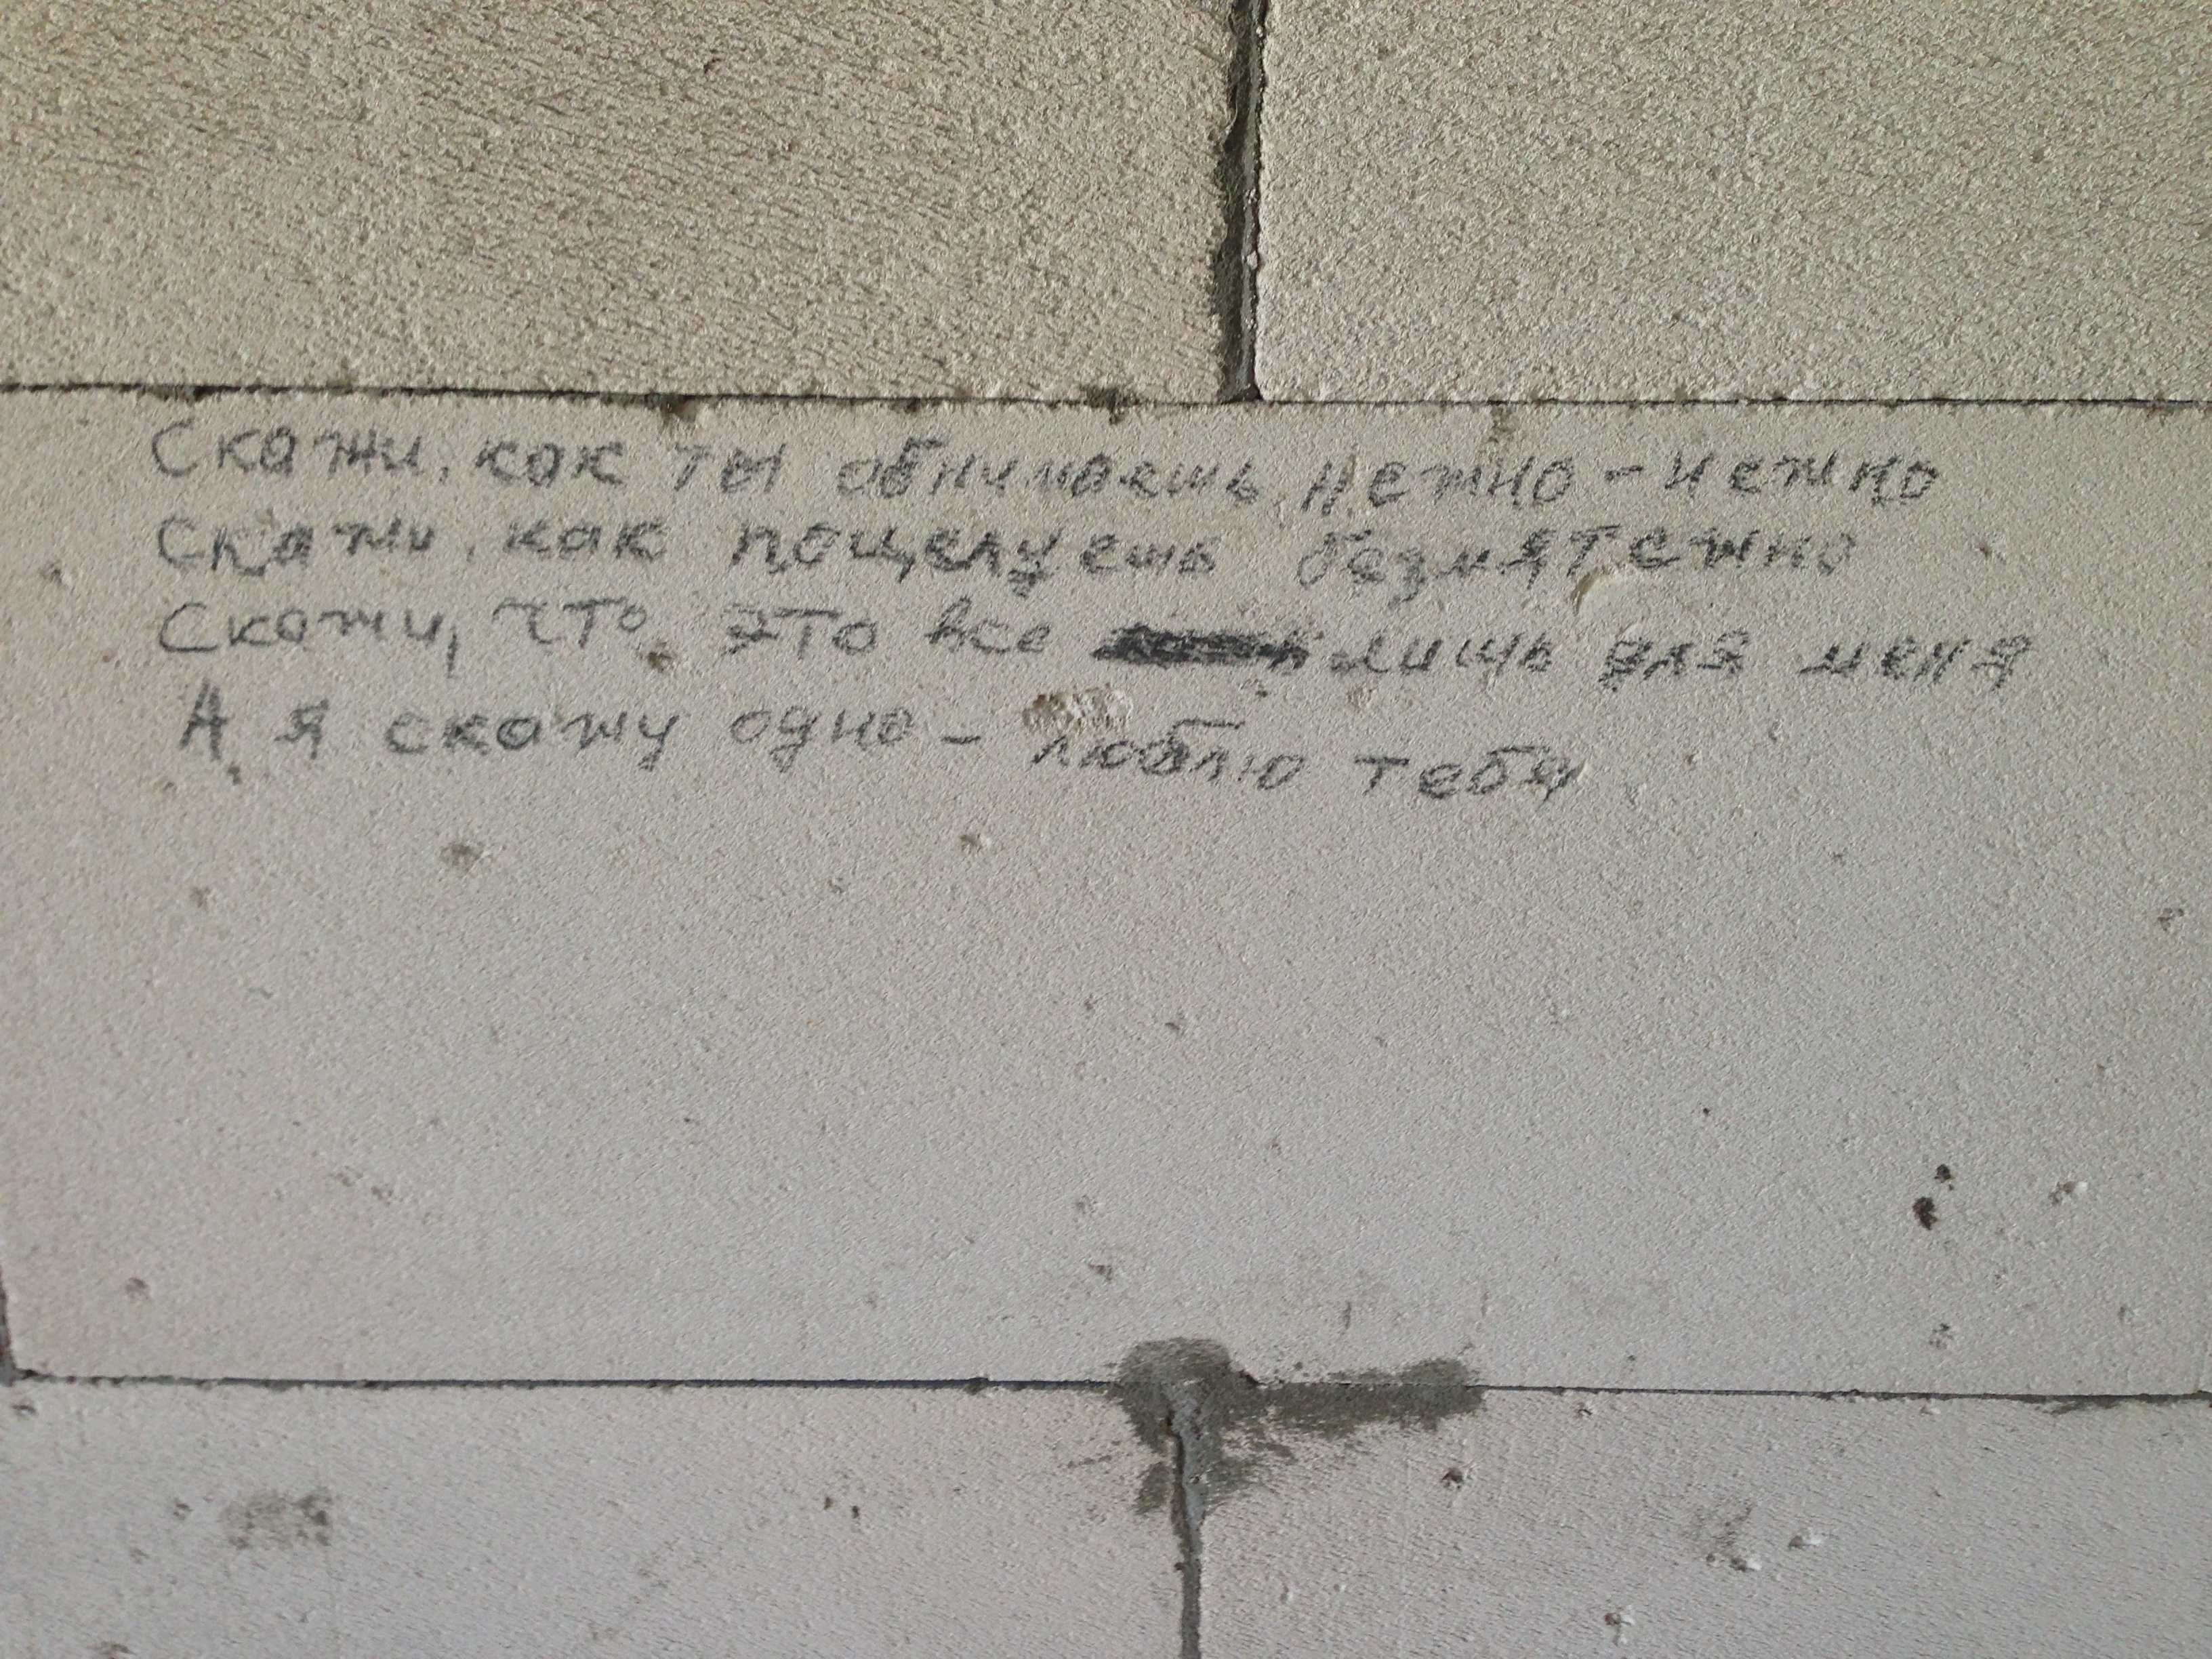 Скажи, как ты обнимаешь нежно - нежно
Скажи, как поцелуешь безмятежно
Скажи, что это все лишь для меня
А я скажу одно - люблю тебя